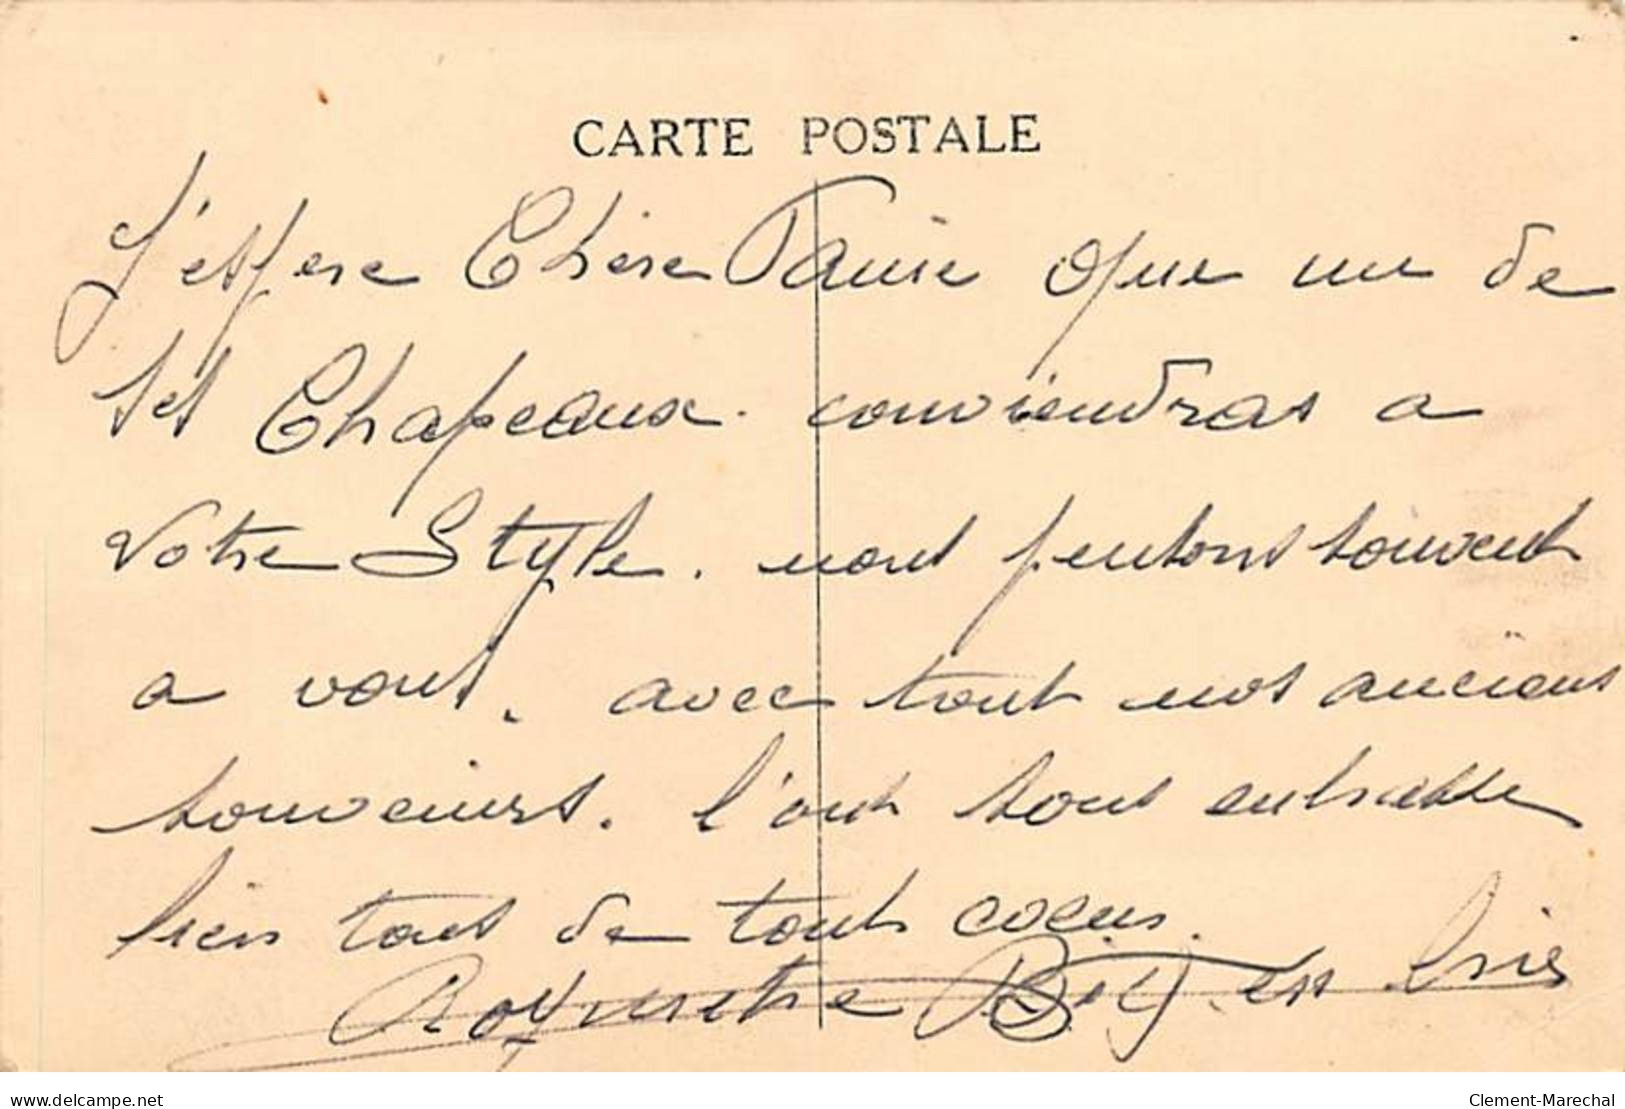 CARTE POSTALE
J'espere Chère que un de
ses Chapeaux. conviendras a
votre Style. nous pensons souvent
a vous. avec tout nos anciens
souvenirs. l'on vous
bien tous de tout coeur.
www.delcampe.net
Clement-Marechal